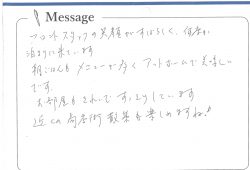 Message
フロントスタッフの笑顔がすばらしく、何度か
泊まりに来ています
朝ごはんもメニューが多く アットホームで美味しい
です。
お部屋もきれいですっきりしています
近くの商店街散策も楽しめますね♪